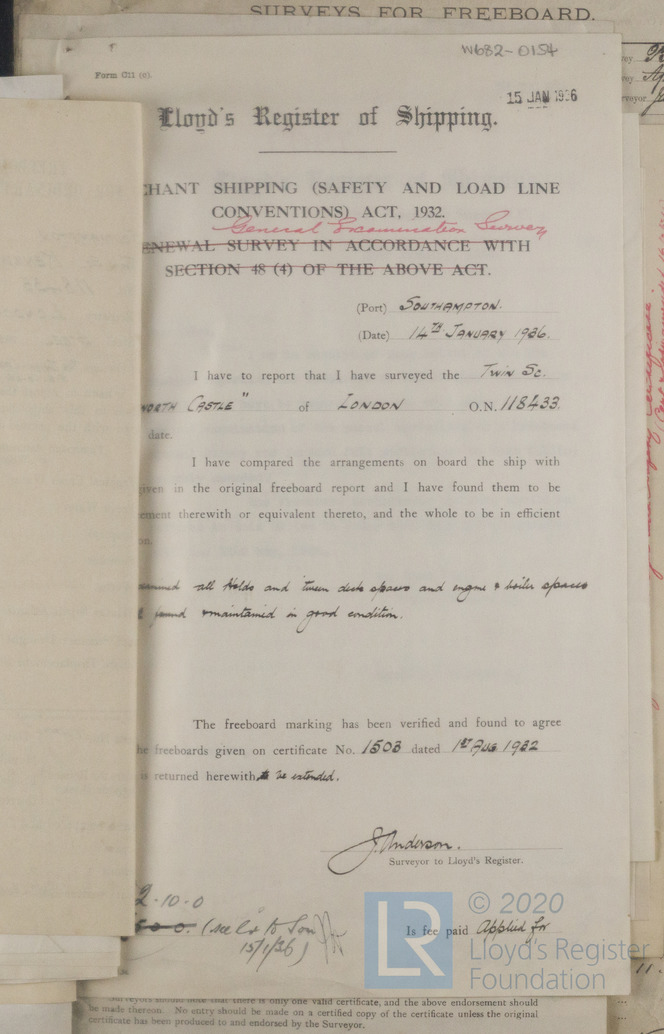 SURVEYS FOR FREEBOARD.
W682-0154
Form C11 (c).
15 JAN 1936
Lloyd's Register of Shipping.
CHANT SHIPPING (SAFETY AND LOAD LINE
CONVENTIONS) ACT, 1932.
General Examination Survey
ENEWAL SURVEY IN ACCORDANCE WITH
SECTION 48 (4) OF THE ABOVE ACT.
(Port) SOUTHAMPTON.
(Date) 14TH JANUARY 1936.
I have to report that I have surveyed the Twin Sc.
WORTH CASTLE" of LONDON O.N. 118433.
date.
I have compared the arrangements on board the ship with
given in the original freeboard report and I have found them to be
ement therewith or equivalent thereto, and the whole to be in efficient
on.
all Holds and 'tween deck spaces and engine & boiler spaces
found & maintained in good condition.
The freeboard marking has been verified and found to agree
he freeboards given on certificate No. 1503 dated 1st Aug 1932
is returned herewith, to be extended.
J. Anderson.
Surveyor to Lloyd's Register.
2.10.0
15/1/36)
Is fee paid Applied for
LR
© 2020
Lloyd's Register
Foundation
Surveyors should note that there is only one valid certificate, and the above endorsement should
be made thereon. No entry should be made on a certified copy of the certificate unless the original
certificate has been produced to and endorsed by the Surveyor.